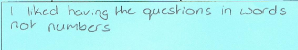 I liked having the questions in words
not numbers